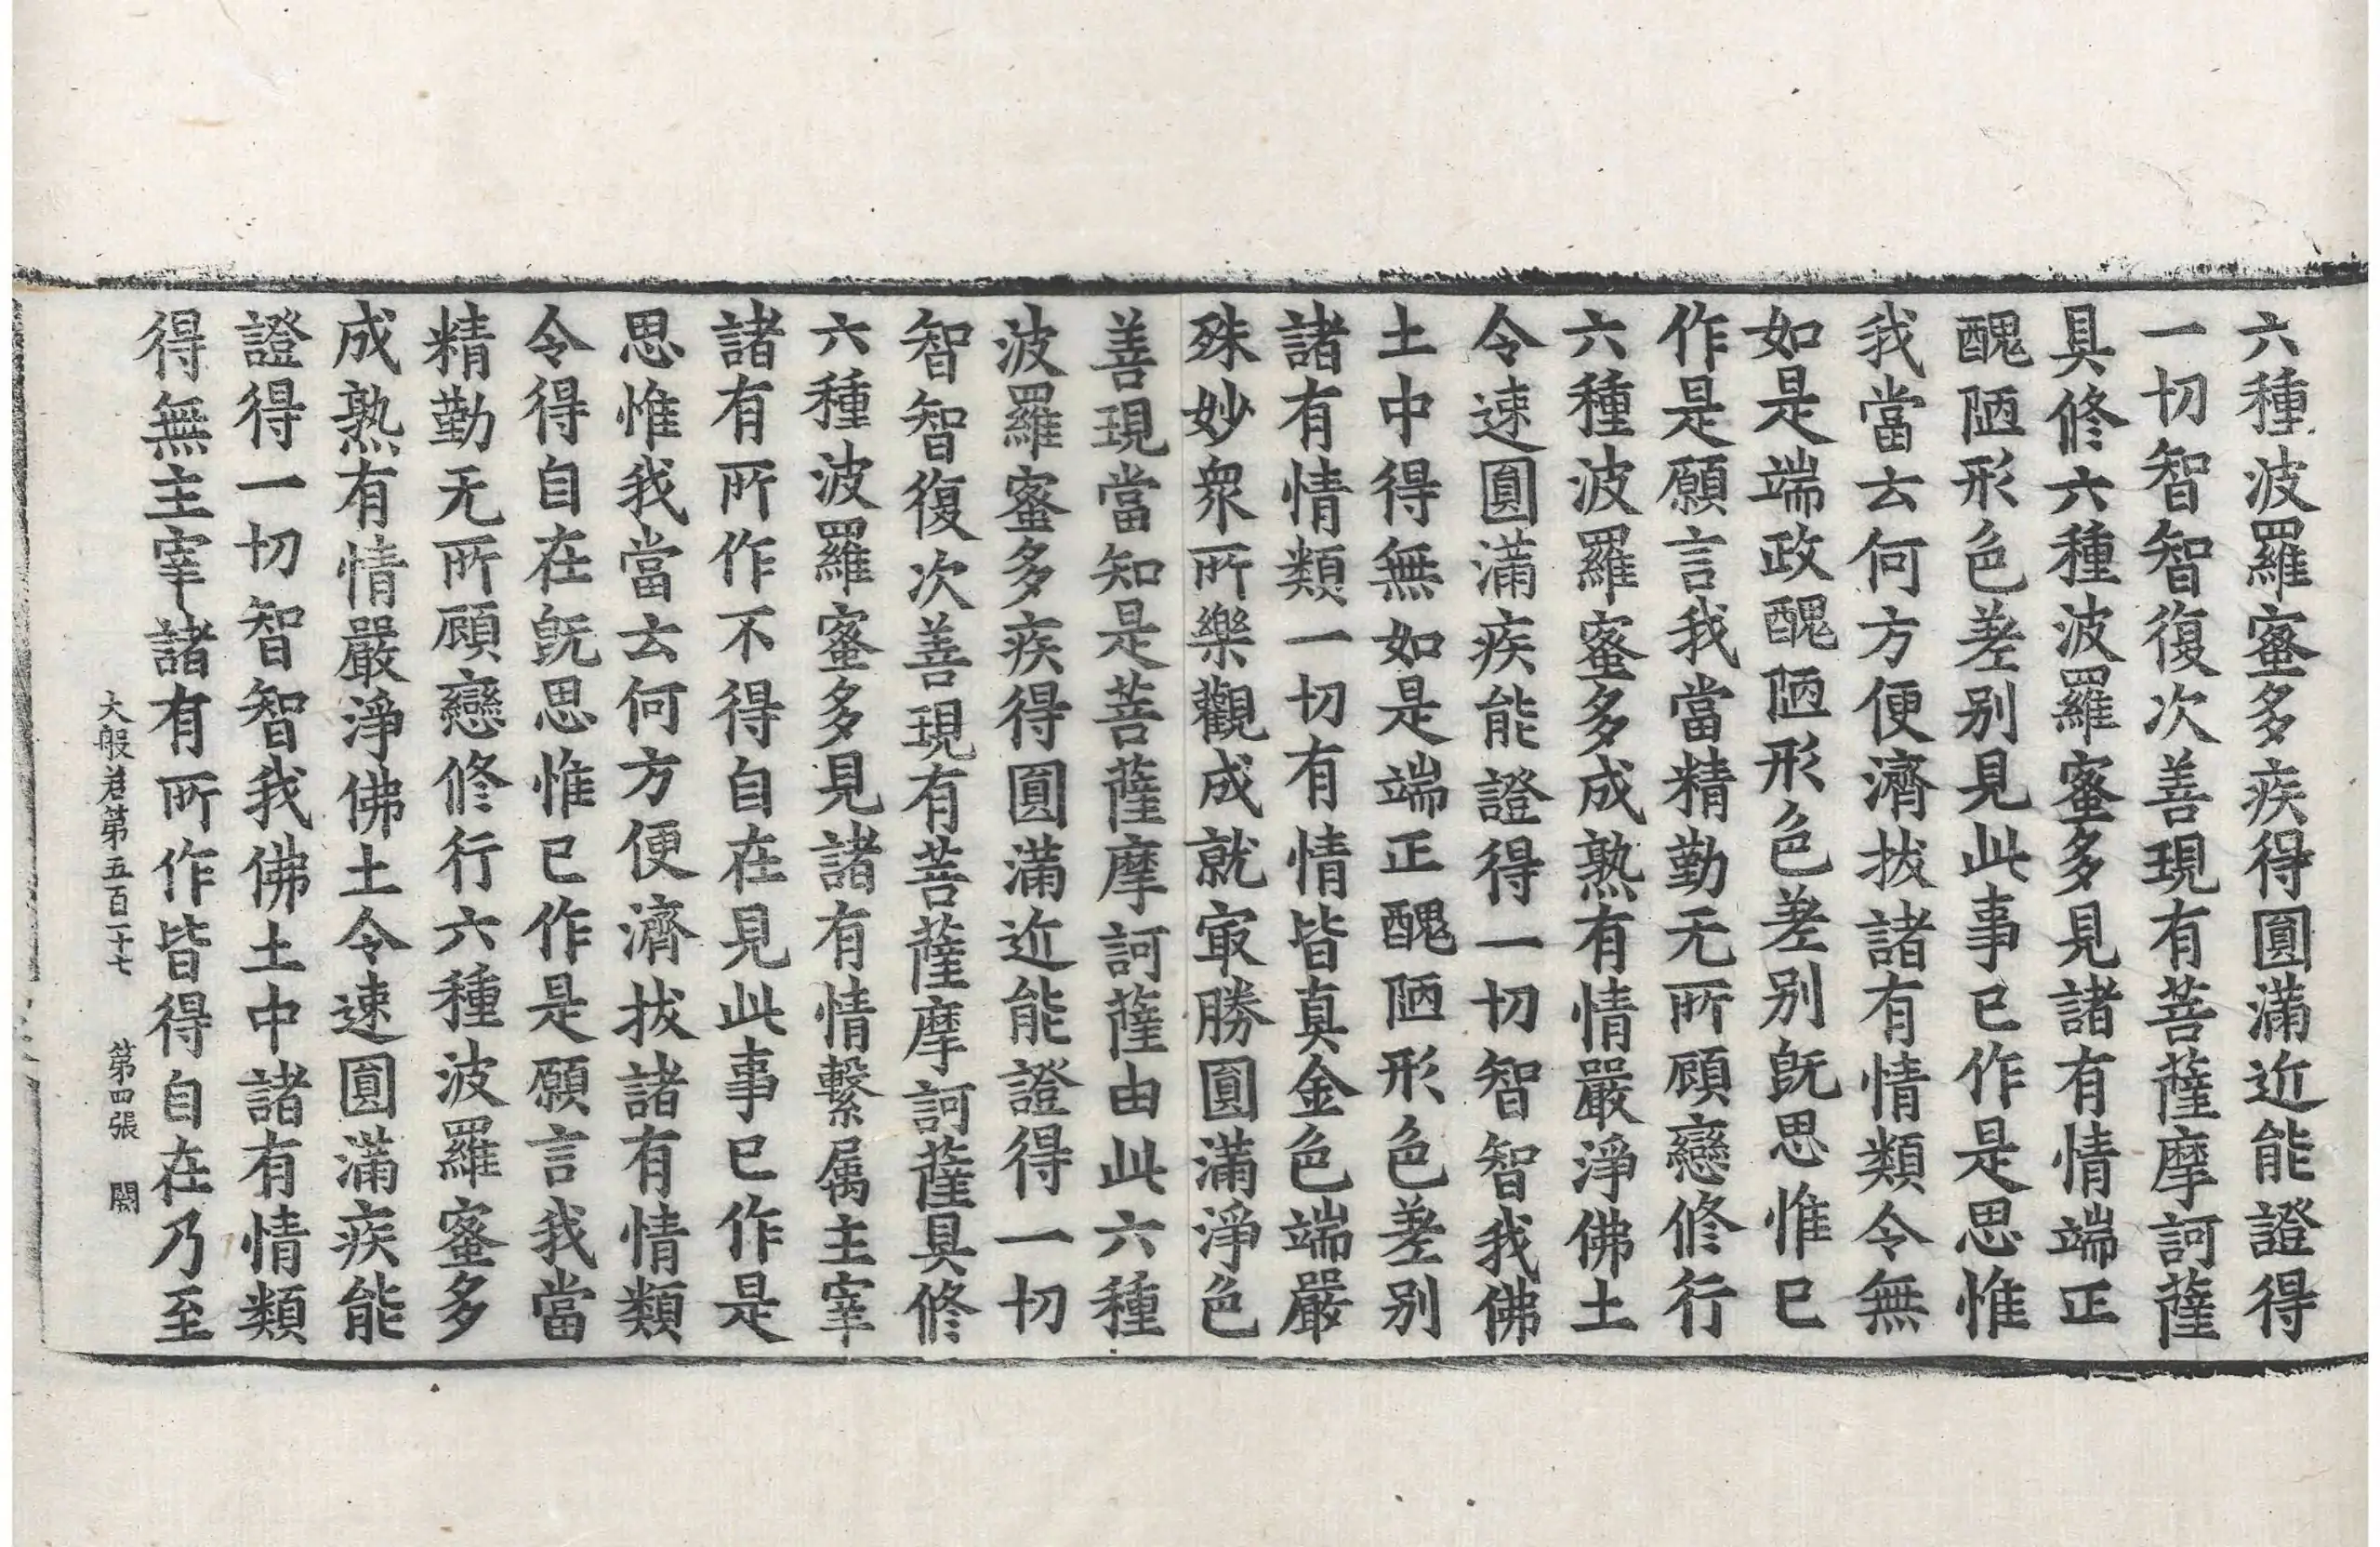 六種波羅蜜多疾得圓滿近能證得
一切智智復次善現有菩薩摩訶薩
具修六種波羅蜜多見諸有情端正
醜陋形色差別見此事已作是思惟
我當云何方便濟拔諸有情類令無
如是端政醜陋形色差別旣思惟已
作是願言我當精勤无所顧戀修行
六種波羅蜜多成熟有情嚴淨佛土
令速圓滿疾能證得一切智智我佛
土中得無如是端正醜陋形色差別
諸有情類一切有情皆真金色端嚴
殊妙衆所樂觀成就㝡勝圓滿淨色
善現當知是菩薩摩訶薩由此六種
波羅蜜多疾得圓滿近能證得一切
智智復次善現有菩薩摩訶薩具修
六種波羅蜜多見諸有情繫属主宰
諸有所作不得自在見此事已作是
思惟我當云何方便濟拔諸有情類
令得自在旣思惟已作是願言我當
精勤无所顧戀修行六種波羅蜜多
成熟有情嚴淨佛土令速圓滿疾能
證得一切智智我佛土中諸有情類
得無主宰諸有所作皆得自在乃至
大般若第五百一十七 第四張 闕